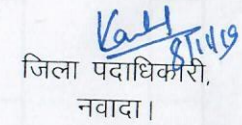 8/11/19
जिला पदाधिकारी,
नवादा।